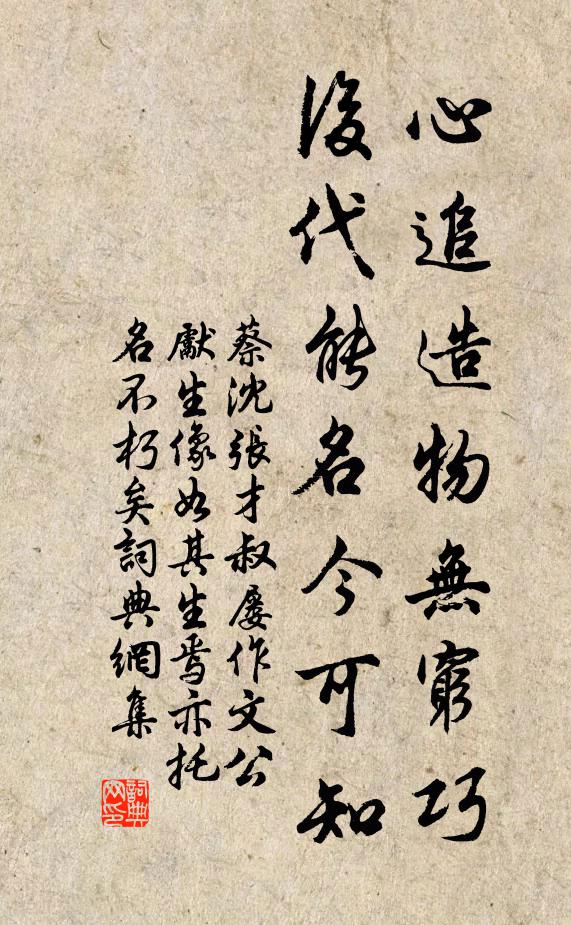 心追造物無窮巧
後代能名今可知
蔡沈張才叔屡作文公
獻生像如其生焉亦托
名不朽矣詞典網集
詞典网印